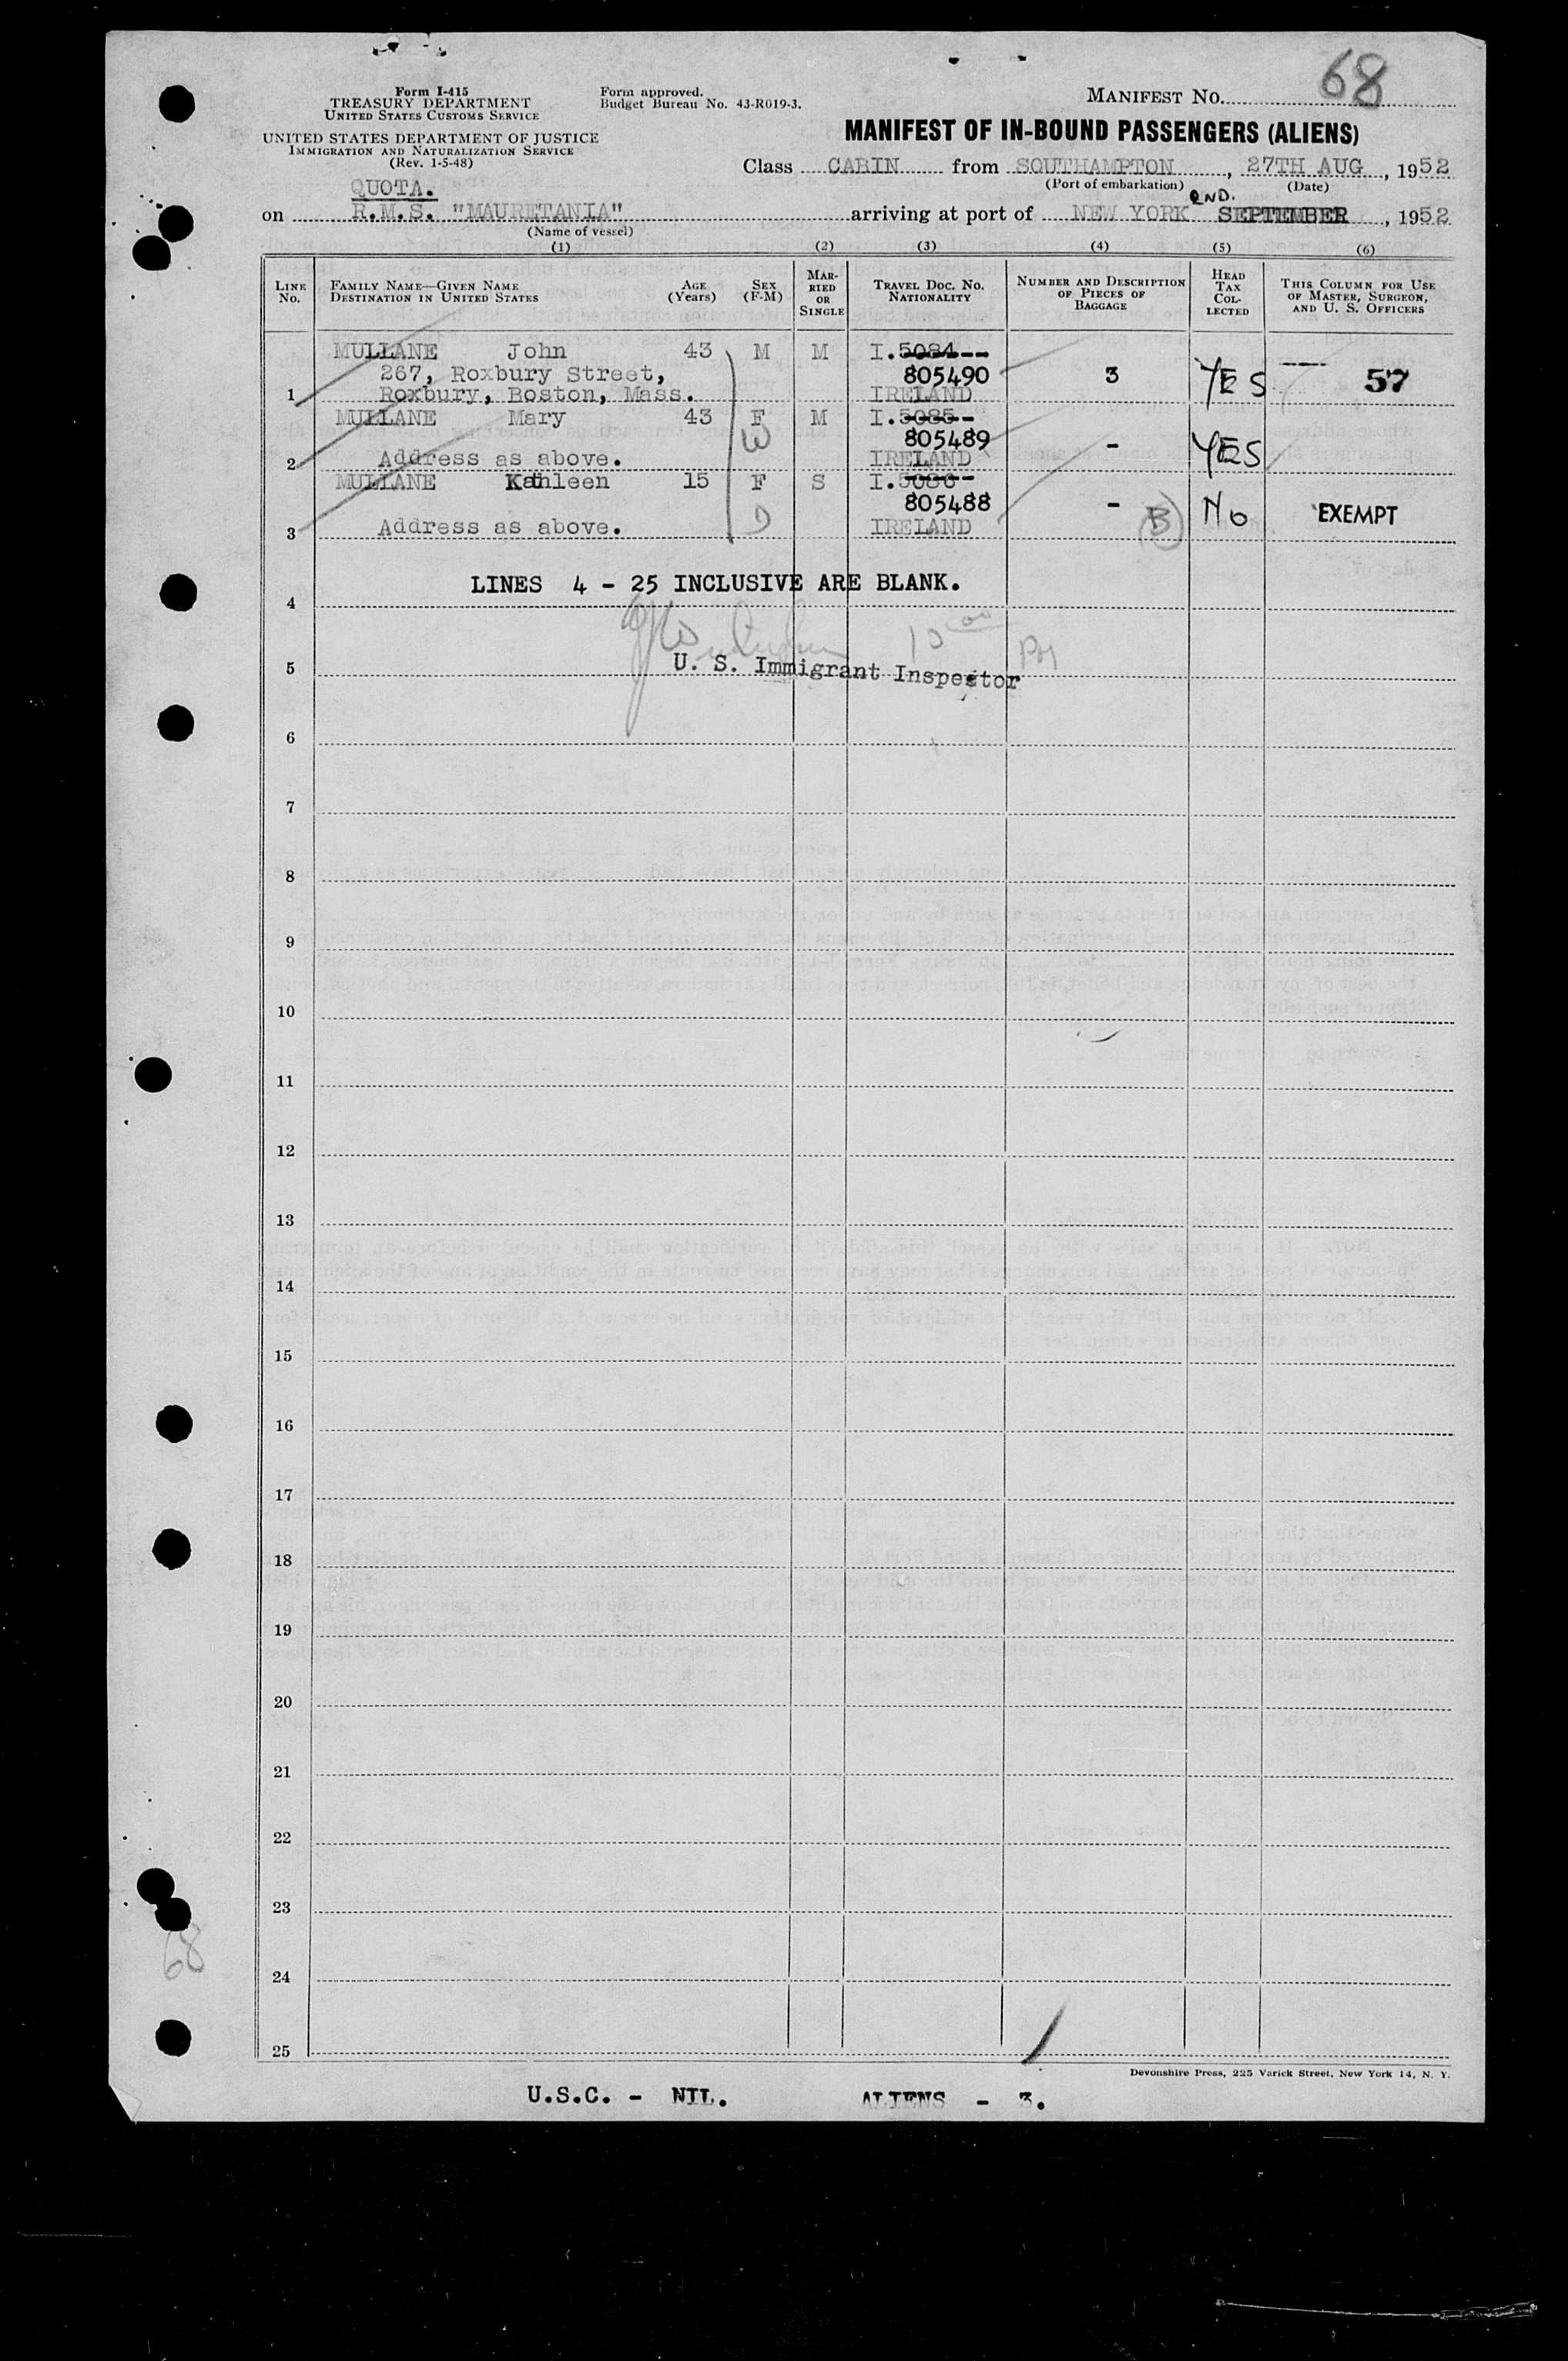 68
Form I-415
TREASURY DEPARTMENT
UNITED STATES CUSTOMS SERVICE
UNITED STATES DEPARTMENT OF JUSTICE
IMMIGRATION AND NATURALIZATION SERVICE
(Rev. 1-5-48)
Form approved.
Budget Bureau No. 43-R019-3.
MANIFEST No.
MANIFEST OF IN-BOUND PASSENGERS (ALIENS)
Class CABIN from SOUTHAMPTON, 27TH AUG, 1952
(Port of embarkation) (Date)
QUOTA.
2ND.
on R.M.S. "MAURETANIA" arriving at port of NEW YORK SEPTEMBER, 1952
(Name of vessel)
(1) (2) (3) (4) (5) (6)
LINE No.
FAMILY NAME—GIVEN NAME
DESTINATION IN UNITED STATES
AGE (Years)
SEX (F-M)
MARRIED OR SINGLE
TRAVEL DOC. NO. NATIONALITY
NUMBER AND DESCRIPTION OF PIECES OF BAGGAGE
HEAD TAX COLLECTED
THIS COLUMN FOR USE OF MASTER, SURGEON, AND U. S. OFFICERS
MULLANE John 43 M M I.5084
267, Roxbury Street, 805490 3 YES 57
1 Roxbury, Boston, Mass. IRELAND
MULLANE Mary 43 F M I.5085
W 805489 - YES
2 Address as above. IRELAND
MULLANE Kathleen 15 F S I.5086
D 805488 - B No EXEMPT
3 Address as above. IRELAND
LINES 4 - 25 INCLUSIVE ARE BLANK.
4
10 00 PM
5 U. S. Immigrant Inspector
6
7
8
9
10
11
12
13
14
15
16
17
18
19
20
21
22
23
68
24
25
Devonshire Press, 225 Varick Street, New York 14, N. Y.
U.S.C. - NIL. ALIENS - 3.